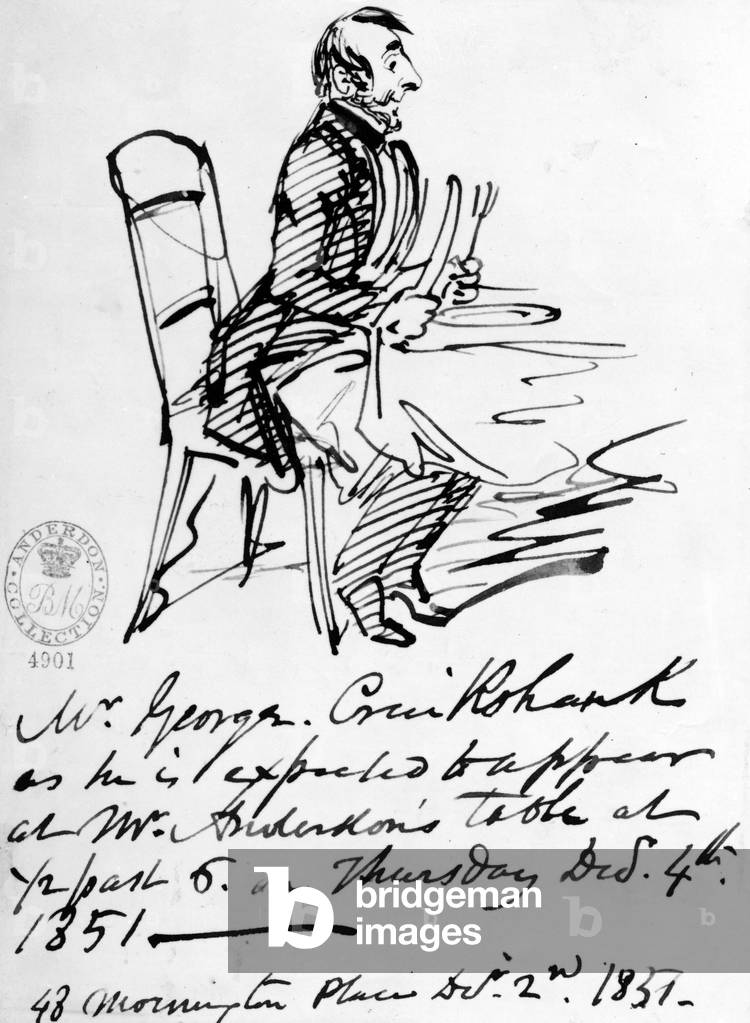 ANDERDON COLLECTION
BM
4901
Mr. George. Cruikshank
as he is expected to appear
at Mr. Anderdon's table at
1/2 past 6. on Thursday Decr. 4th.
1851
48 Mornington Place Decr. 2nd. 1851.
b
bridgeman
images